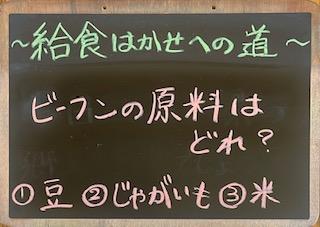 ～給食はかせへの道～
ビーフンの原料は
どれ？
①豆 ②じゃがいも ③米